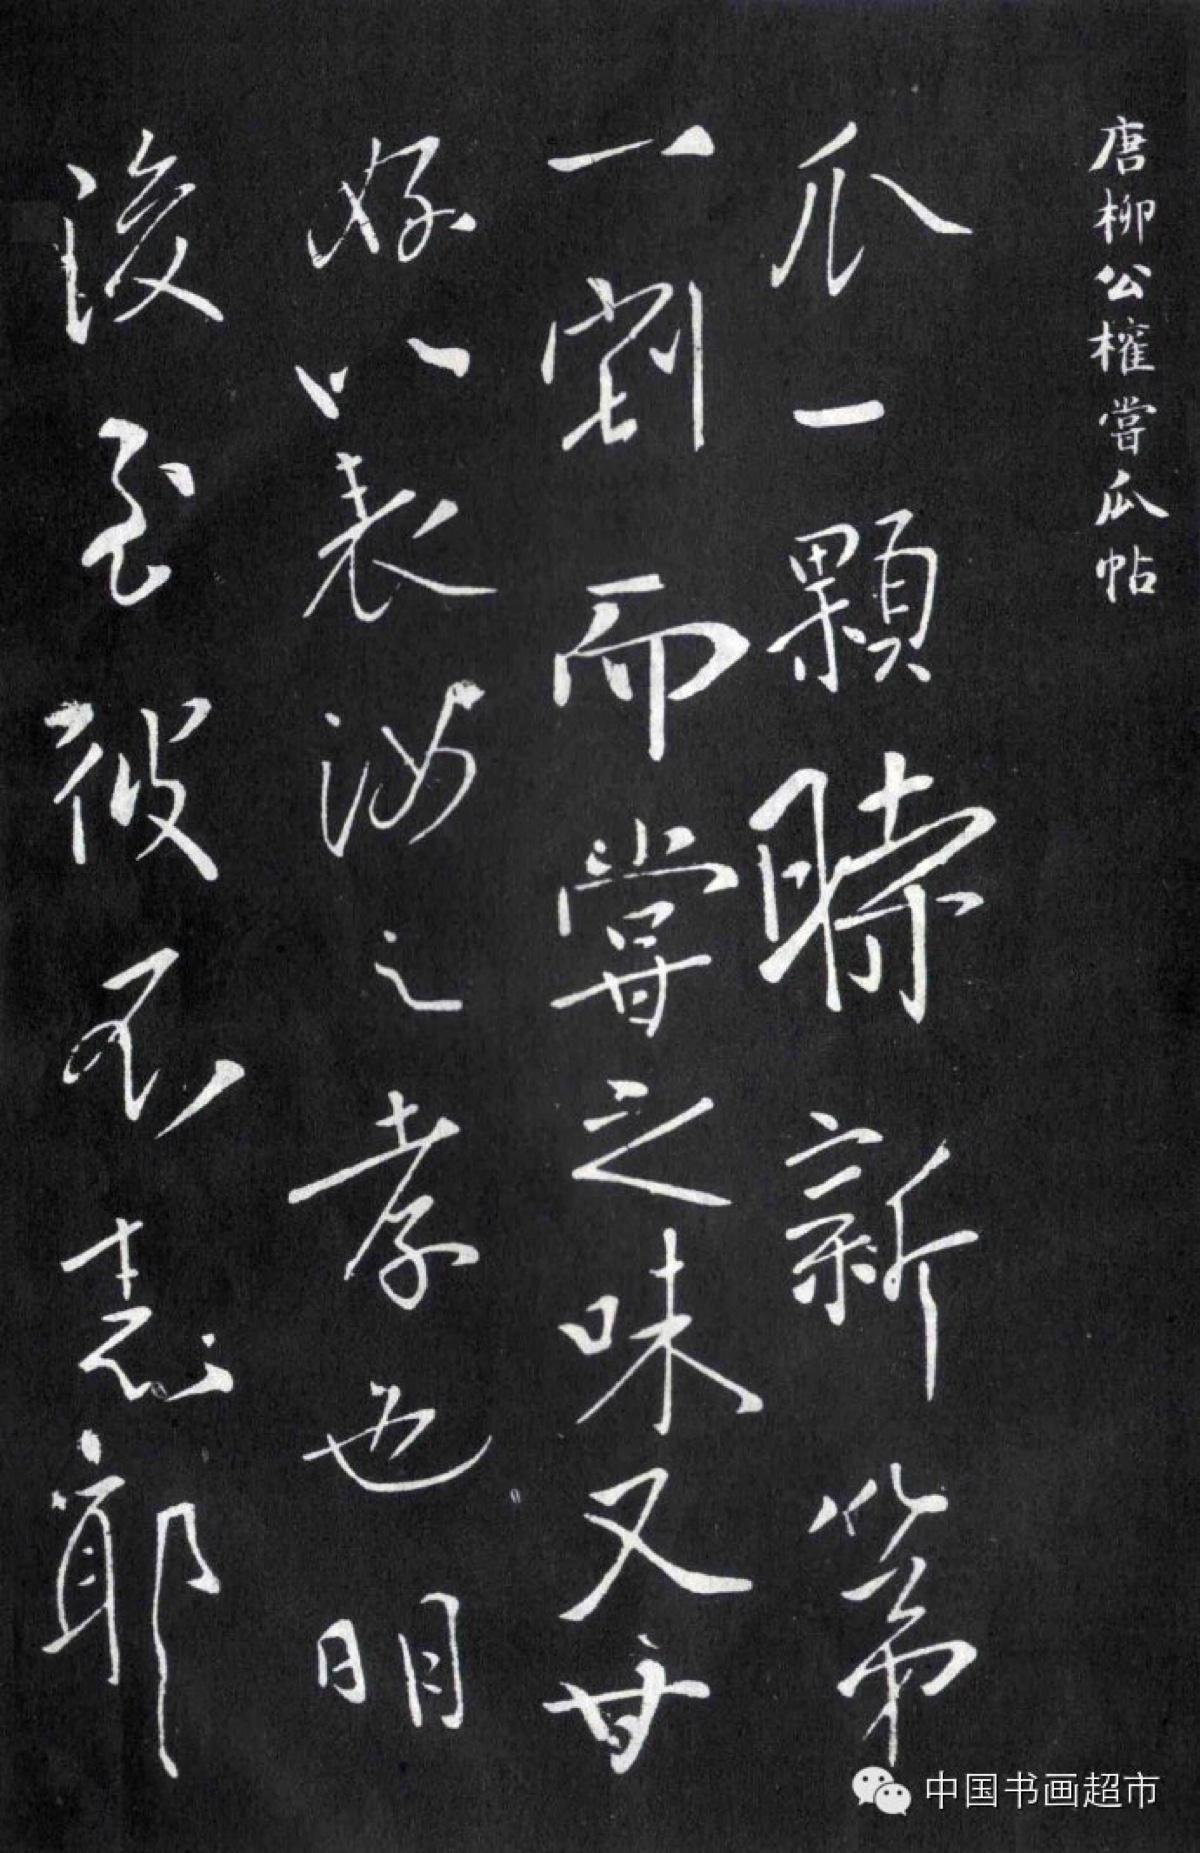 唐柳公權嘗瓜帖
瓜一顆時新新第
一割而嘗之味又甘
好以表汝之孝也明
後至彼不悉耶
中国书画超市